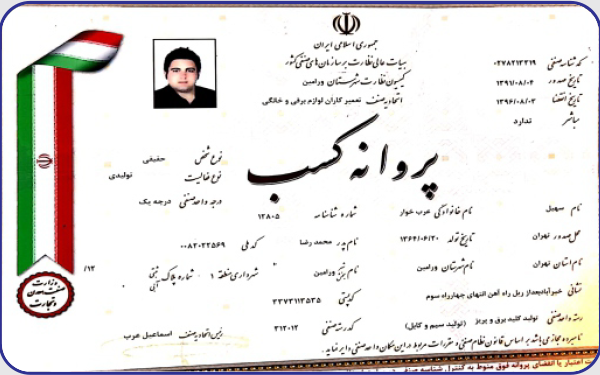 جمهوری اسلامی ایران
هیات عالی نظارت بر سازمان های صنفی کشور
کمیسیون نظارت شهرستان ورامین
اتحادیه صنف تعمیر کاران لوازم برقی و خانگی
کد شناسه صنفی ۰۲۷۸۲۱۳۳۱۹
تاریخ صدور ۱۳۹۱/۰۸/۰۴
تاریخ انقضا ۱۳۹۶/۰۸/۰۳
مباشر ندارد
پروانه کسب
نوع شخص حقیقی
نوع فعالیت تولیدی
درجه واحد صنفی درجه یک
نام سهیل نام خانوادگی عرب خوار شماره شناسنامه ۱۲۸۰۵
محل صدور تهران تاریخ تولد ۱۳۶۴/۰۶/۲۰ نام پدر محمد رضا کد ملی ۰۰۸۲۰۲۲۵۶۹
نام استان تهران نام شهرستان ورامین ورامین شهرداری منطقه ۱ شماره پلاک آبی ۱۲/
نشانی خیرآباد بعداز ریل راه آهن انتهای چهارراه سوم کد پستی ۳۳۷۳۱۱۳۵۳۵
رسته واحد صنفی تولید کلید برق و پریز (تولید سیم و کابل) کد رسته صنفی ۳۱۲۰۱۲
نامبرده مجاز می باشد بر اساس قانون نظام صنفی و مقررات مربوط در این مکان واحد صنفی دایر نماید.
رئیس اتحادیه صنف اسماعیل عرب
وزارت
صنعت معدن
و تجارت
اعتبار یا انقضای پروانه فوق منوط به کنترل شناسه